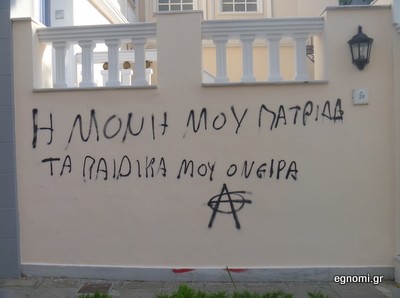 Η ΜΟΝΗ ΜΟΥ ΠΑΤΡΙΔΑ
ΤΑ ΠΑΙΔΙΚΑ ΜΟΥ ΟΝΕΙΡΑ
egnomi.gr